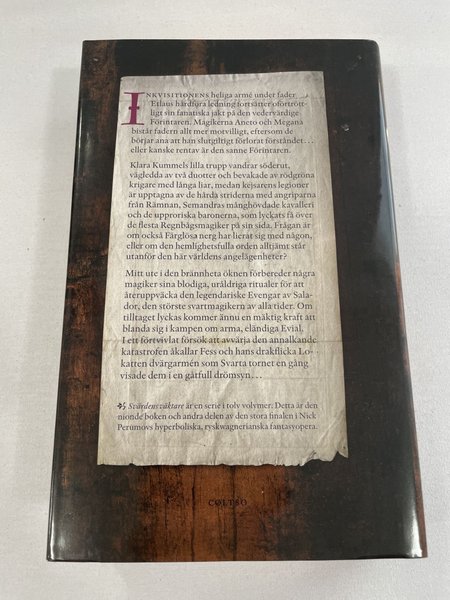 INKVISITIONENS heliga armé under fader
Etlaus hårdföra ledning fortsätter oförtrött-
ligt sin fanatiska jakt på den vedervärdige
Förintaren. Magikerna Aneto och Megana
bistår fadern allt mer motvilligt, eftersom de
börjar ana att han slutgiltigt förlorat förståndet…
eller kanske rentav är den sanne Förintaren.
Klara Kummels lilla trupp vandrar söderut,
vägledda av två duotter och bevakade av rödgröna
krigare med långa liar, medan kejsarens legioner
är upptagna av de hårda striderna med angriparna
från Rämnan, Semandras månghövdade kavalleri
och de upproriska baronerna, som lyckats få över
de flesta Regnbågsmagiker på sin sida. Frågan är
om också Färglösa nerg har lierat sig med någon,
eller om den hemlighetsfulla orden alltjämt står
utanför den här världens angelägenheter?
Mitt ute i den brännheta öknen förbereder några
magiker sina blodiga, uråldriga ritualer för att
återuppväcka den legendariske Evengar av Sala-
dor, den störste svartmagikern av alla tider. Om
tilltaget lyckas kommer ännu en mäktig kraft att
blanda sig i kampen om arma, eländiga Evial.
I ett förtvivlat försök att avvärja den annalkande
katastrofen åkallar Fess och hans drakflicka Lo-
katten dvärgarmén som Svarta tornet en gång
visade dem i en gåtfull drömsyn…
Svärdens väktare är en serie i tolv volymer. Detta är den
nionde boken och andra delen av den stora finalen i Nick
Perumovs hyperboliska, ryskwagnerianska fantasyopera.
COLTSO